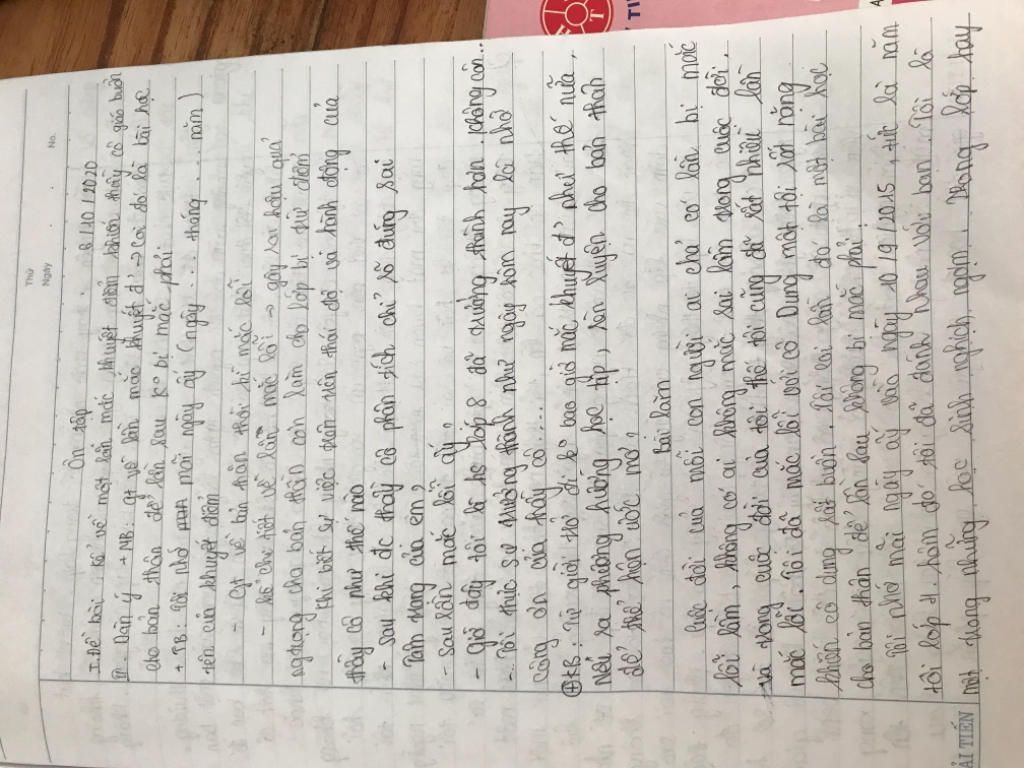 Thứ
Ngày
No.
Ôn tập 8/10/2020
I. Đề bài: Kể về một lần mắc khuyết điểm khiến thầy cô giáo buồn
II Dàn ý + MB: gt về lần mắc khuyết đ' → Coi đó là bài học
cho bản thân để lần sau ko bị mắc phải
+ TB: Tôi nhớ mãi ngày ấy (ngày ... tháng ... năm)
tên của khuyết điểm
- Gt về bản thân thời bị mắc lỗi
- kể chi tiết về lần mắc lỗi → gây ra hậu quả
nghiêm trọng cho bản thân còn làm cho lớp bị trừ điểm
Khi biết sự việc trên nên thái độ và hành động của
thầy cô như thế nào
- Sau khi đc thầy cô phân tích chỉ rõ đúng sai
Tâm trạng của em?
- Sau lần mắc lỗi ấy?
- Giờ đây tôi là hs lớp 8 đã trưởng thành hơn, không còn...
- Tôi thực sự trưởng thành như ngày hôm nay là nhờ
công ơn của thầy cô....
+ KB: Từ giờ thì đi ko bao giờ mắc khuyết đ' như thế nữa,
Nói ra phương hướng học tập, rèn luyện cho bản thân
để thể hiện ước mơ?
Bài làm
Cuộc đời của mỗi con người ai chả có lần bị mắc
lỗi lầm, không có ai không mắc sai lầm trong cuộc đời.
Và trong cuộc đời của tôi thì tôi cũng đã rất nhiều lần
mắc lỗi. Tôi đã mắc lỗi với cô Dung một lỗi rất nặng
khiến cô dung rất buồn. Tôi coi lần đó là một bài học
cho bản thân để lần sau không bị mắc phải!
Tôi nhớ mãi ngày ấy vào ngày 10/9/2015, tức là năm
tôi lớp 4. hôm đó tôi đã đánh nhau với bạn. Tôi là
một trong những học sinh nghịch, ngợm. Trong lớp hay
ẢI TIẾN